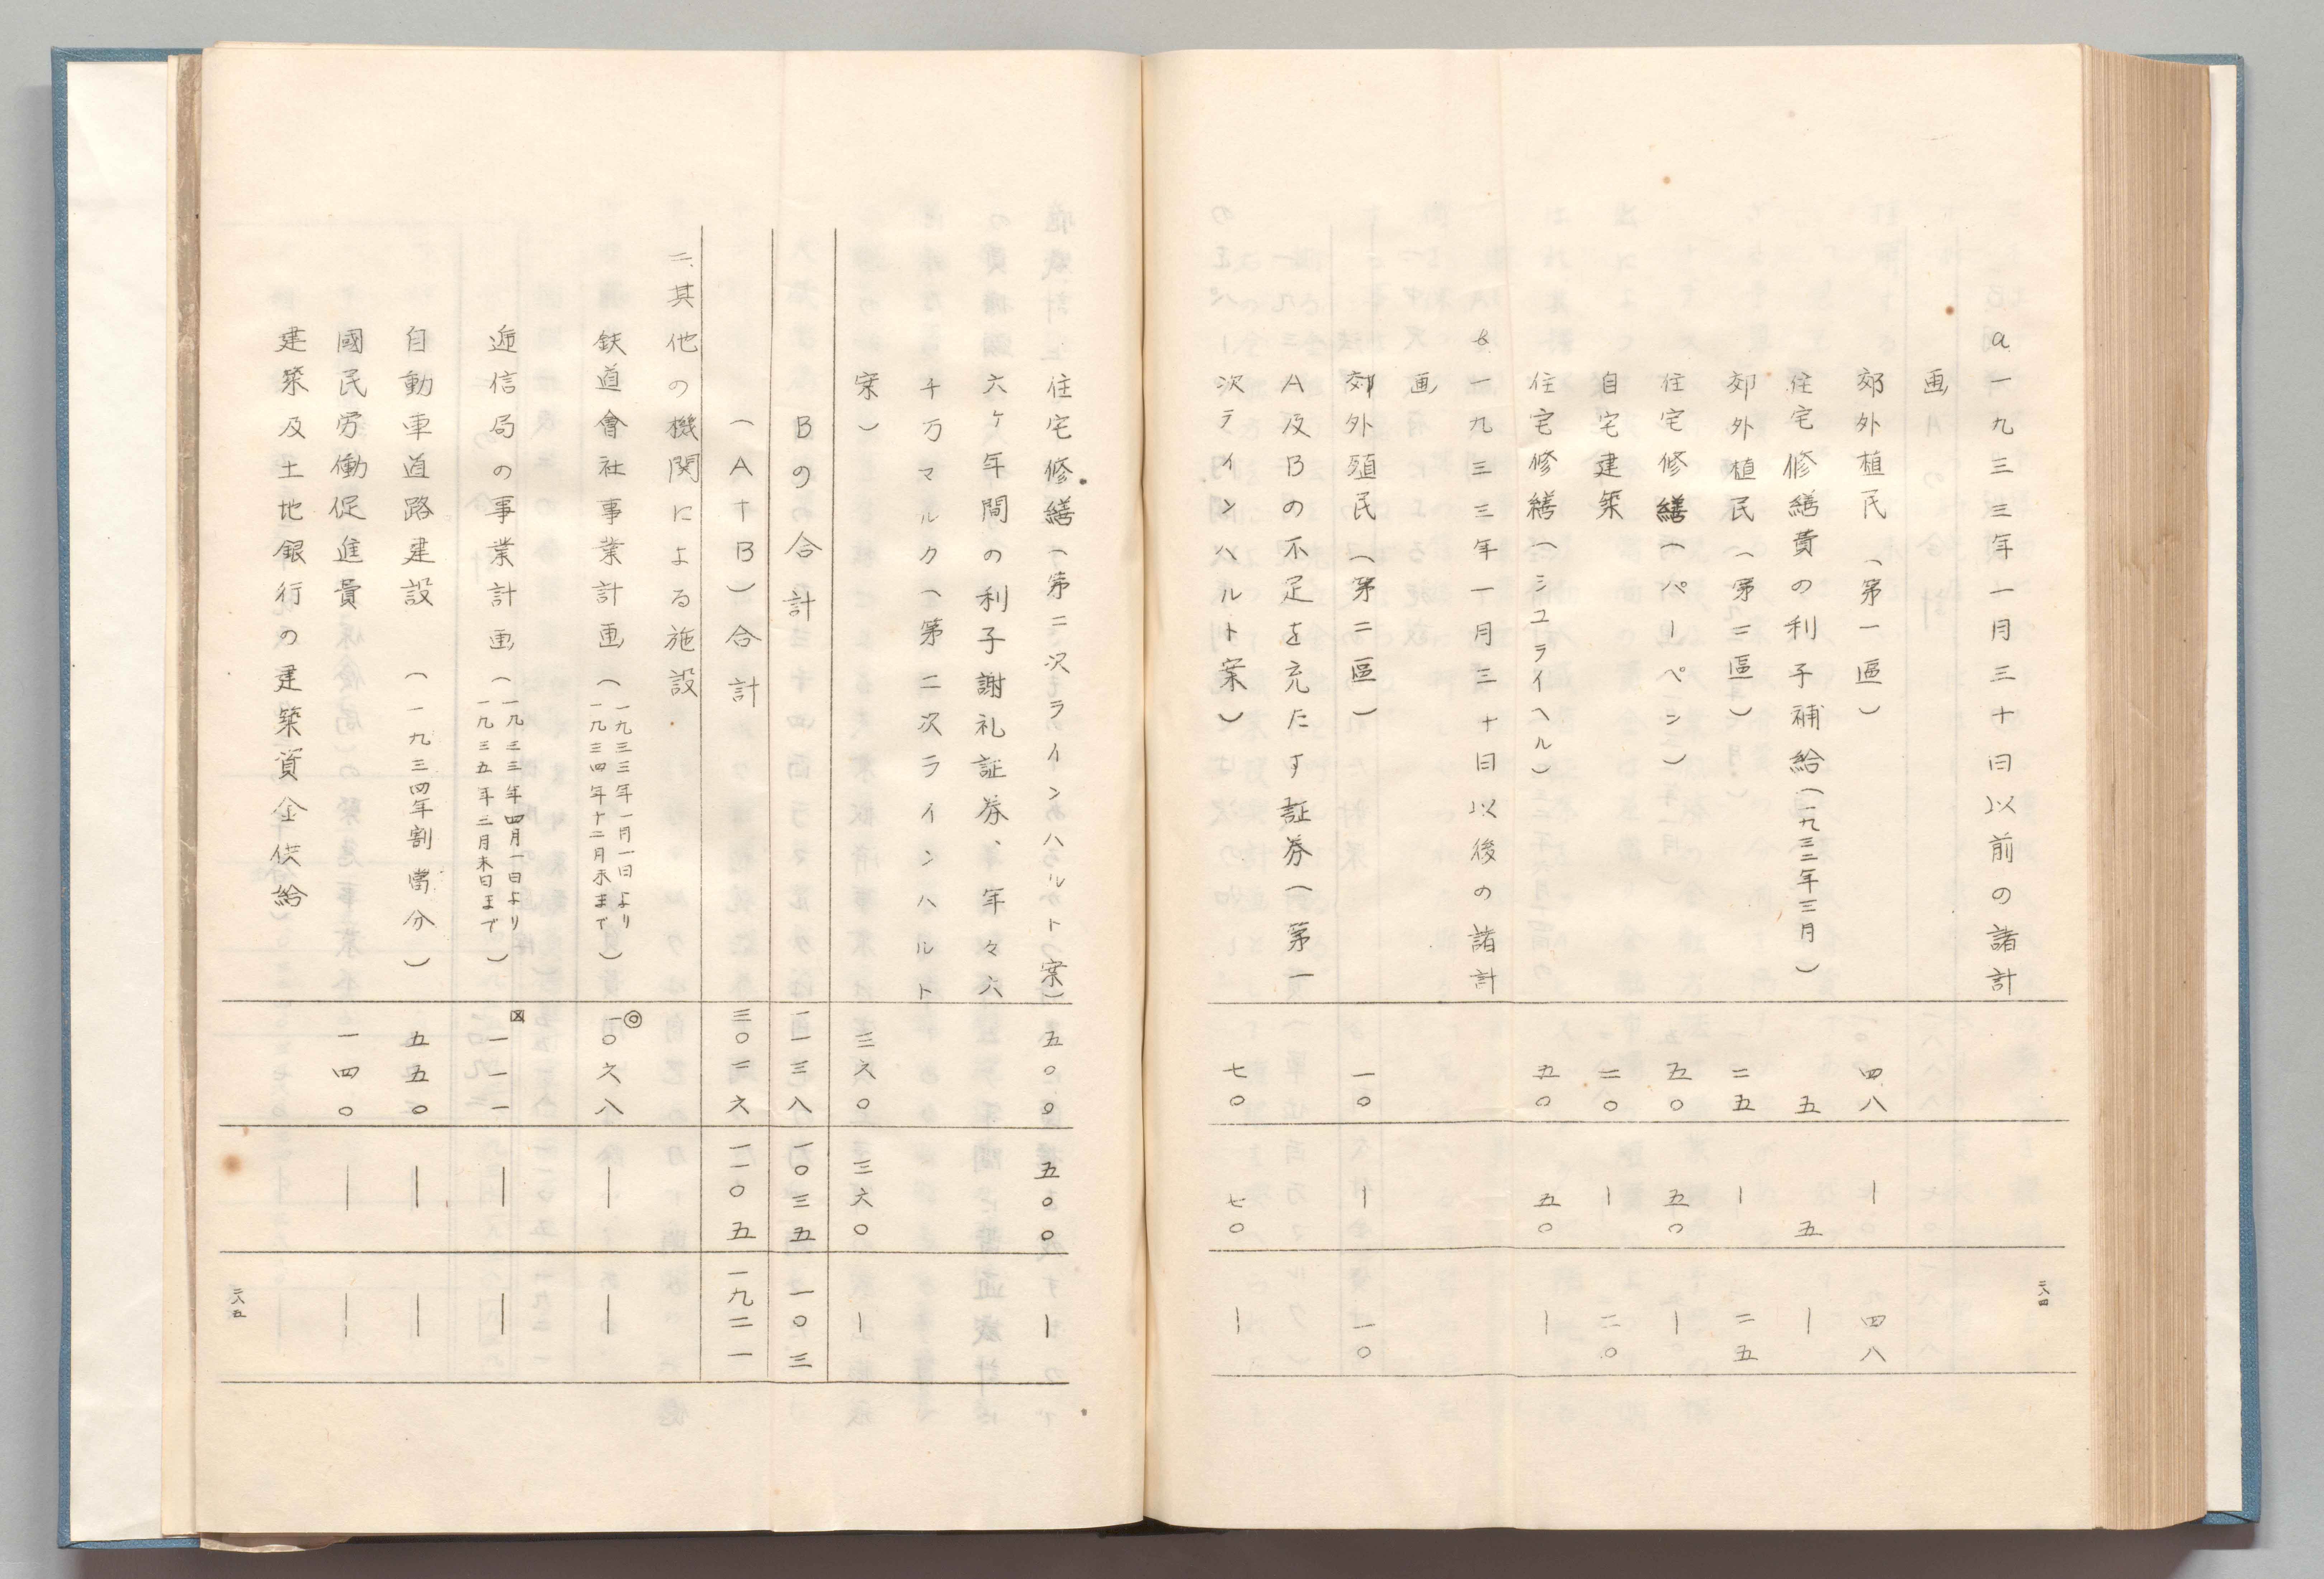 a 一九三三年一月三十日以前の諸計
画
郊外植民（第一區） 四八 ｜ 四八
住宅修繕費の利子補給（一九三二年三月） 五 五 ｜
郊外植民（第二區） 二五 ｜ 二五
住宅修繕（パーペン） 五〇 五〇 ｜
自宅建築 二〇 ｜ 二〇
住宅修繕（シユライヘル） 五〇 五〇 ｜
b 一九三三年一月三十日以後の諸計
画
郊外殖民（第二區） 一〇 ｜ 一〇
A及Bの不足を充たす証券（第一
次ラインハルト案） 七〇 七〇 ｜
二八四
住宅修繕（第二次ラインハルト案） 五〇〇 五〇〇 ｜
六ヶ年間の利子謝礼証券、年々六
千万マルク（第二次ラインハルト
案） 三六〇 三六〇 ｜
Bの合計 一一三八 一〇三五 一〇三
（A＋B）合計 三〇二六 一一〇五 一九二一
二、其他の機関による施設
鉄道會社事業計画（一九三三年一月一日より
一九三四年十二月末まで） ◎一〇六八 ｜ ｜
逓信局の事業計画（一九三三年四月一日より
一九三五年三月末日まで） 一一一 ｜ ｜
自動車道路建設（一九三四年割當分） 五五〇 ｜ ｜
國民労働促進費 一四〇 ｜ ｜
建築及土地銀行の建築資金供給
二八五